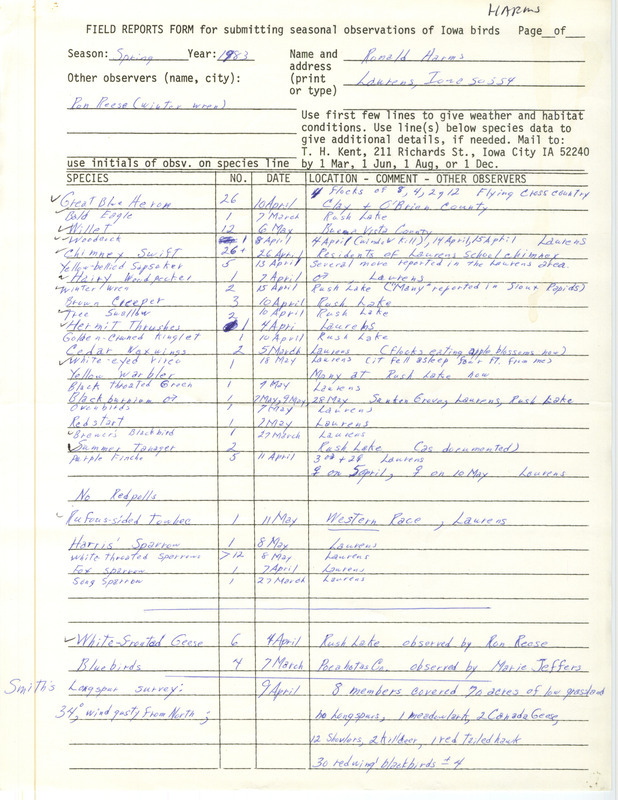 HARMS
FIELD REPORTS FORM for submitting seasonal observations of Iowa birds Page__of__
Season: Spring Year: 1983 Name and address (print or type) Ronald Harms
Laurens, Iowa 50554
Other observers (name, city):
Ron Reese (winter wren)
Use first few lines to give weather and habitat
conditions. Use line(s) below species data to
give additional details, if needed. Mail to:
T. H. Kent, 211 Richards St., Iowa City IA 52240
use initials of obsv. on species line by 1 Mar, 1 Jun, 1 Aug, or 1 Dec.
SPECIES NO. DATE LOCATION - COMMENT - OTHER OBSERVERS
4 flocks of 8, 4, 2, 12 Flying cross country
✓ Great Blue Heron 26 10 April Clay + O'Brien County
✓ Bald Eagle 1 7 March Rush Lake
✓ Willet 12 6 May Buena Vista County
✓ Woodcock 1 8 April 4 April (window kill), 14 April, 15 April Laurens
✓ Chimney Swift 26+ 26 April Residents of Laurens School chimney
Yellow-bellied Sapsucker 5 13 April Several more reported in the Laurens area.
✓ Hairy Woodpecker 1 7 April ♂ Laurens
✓ Winter Wren 2 15 April Rush Lake ("Many" reported in Sioux Rapids)
Brown Creeper 3 10 April Rush Lake
✓ Tree Swallow 2 10 April Rush Lake
✓ Hermit Thrushes 1 4 April Laurens
Golden-Crowned Kinglet 1 10 April Rush Lake
Cedar Waxwings 2 5 March Laurens (Flocks eating apple blossoms now)
✓ White-eyed Vireo 1 18 May Laurens (it fell asleep four ft. from me)
Yellow Warbler Many at Rush Lake now
Black Throated Green 1 9 May Laurens
Blackburnian ♂ 1 7 May, 9 May, 28 May Sunken Grove, Laurens, Rush Lake
Ovenbirds 1 7 May Laurens
Redstart 1 7 May Laurens
✓ Brewer's Blackbird 1 27 March Laurens
✓ Summer Tanager 2 Rush Lake (as documented)
Purple Finche 5 11 April 3♂ + 2♀ Laurens
♀ on 5 April, ♀ on 10 May Laurens
No Redpolls
✓ Rufous-sided Towhee 1 11 May Western Race, Laurens
Harris' Sparrow 1 8 May Laurens
White Throated Sparrows >12 8 May Laurens
Fox Sparrow 1 7 April Laurens
Song Sparrow 1 27 March Laurens
✓ White-fronted Geese 6 4 April Rush Lake observed by Ron Reese
Bluebirds 4 7 March Pocahotas Co. observed by Marie Jeffers
Smith's Longspur survey: 9 April 8 members covered 70 acres of low grassland
34°, wind gusty from North; no longspurs, 1 meadowlark, 2 Canada Geese,
12 Shovlers, 2 killdeer, 1 red tailed hawk
30 redwing blackbirds ± 4